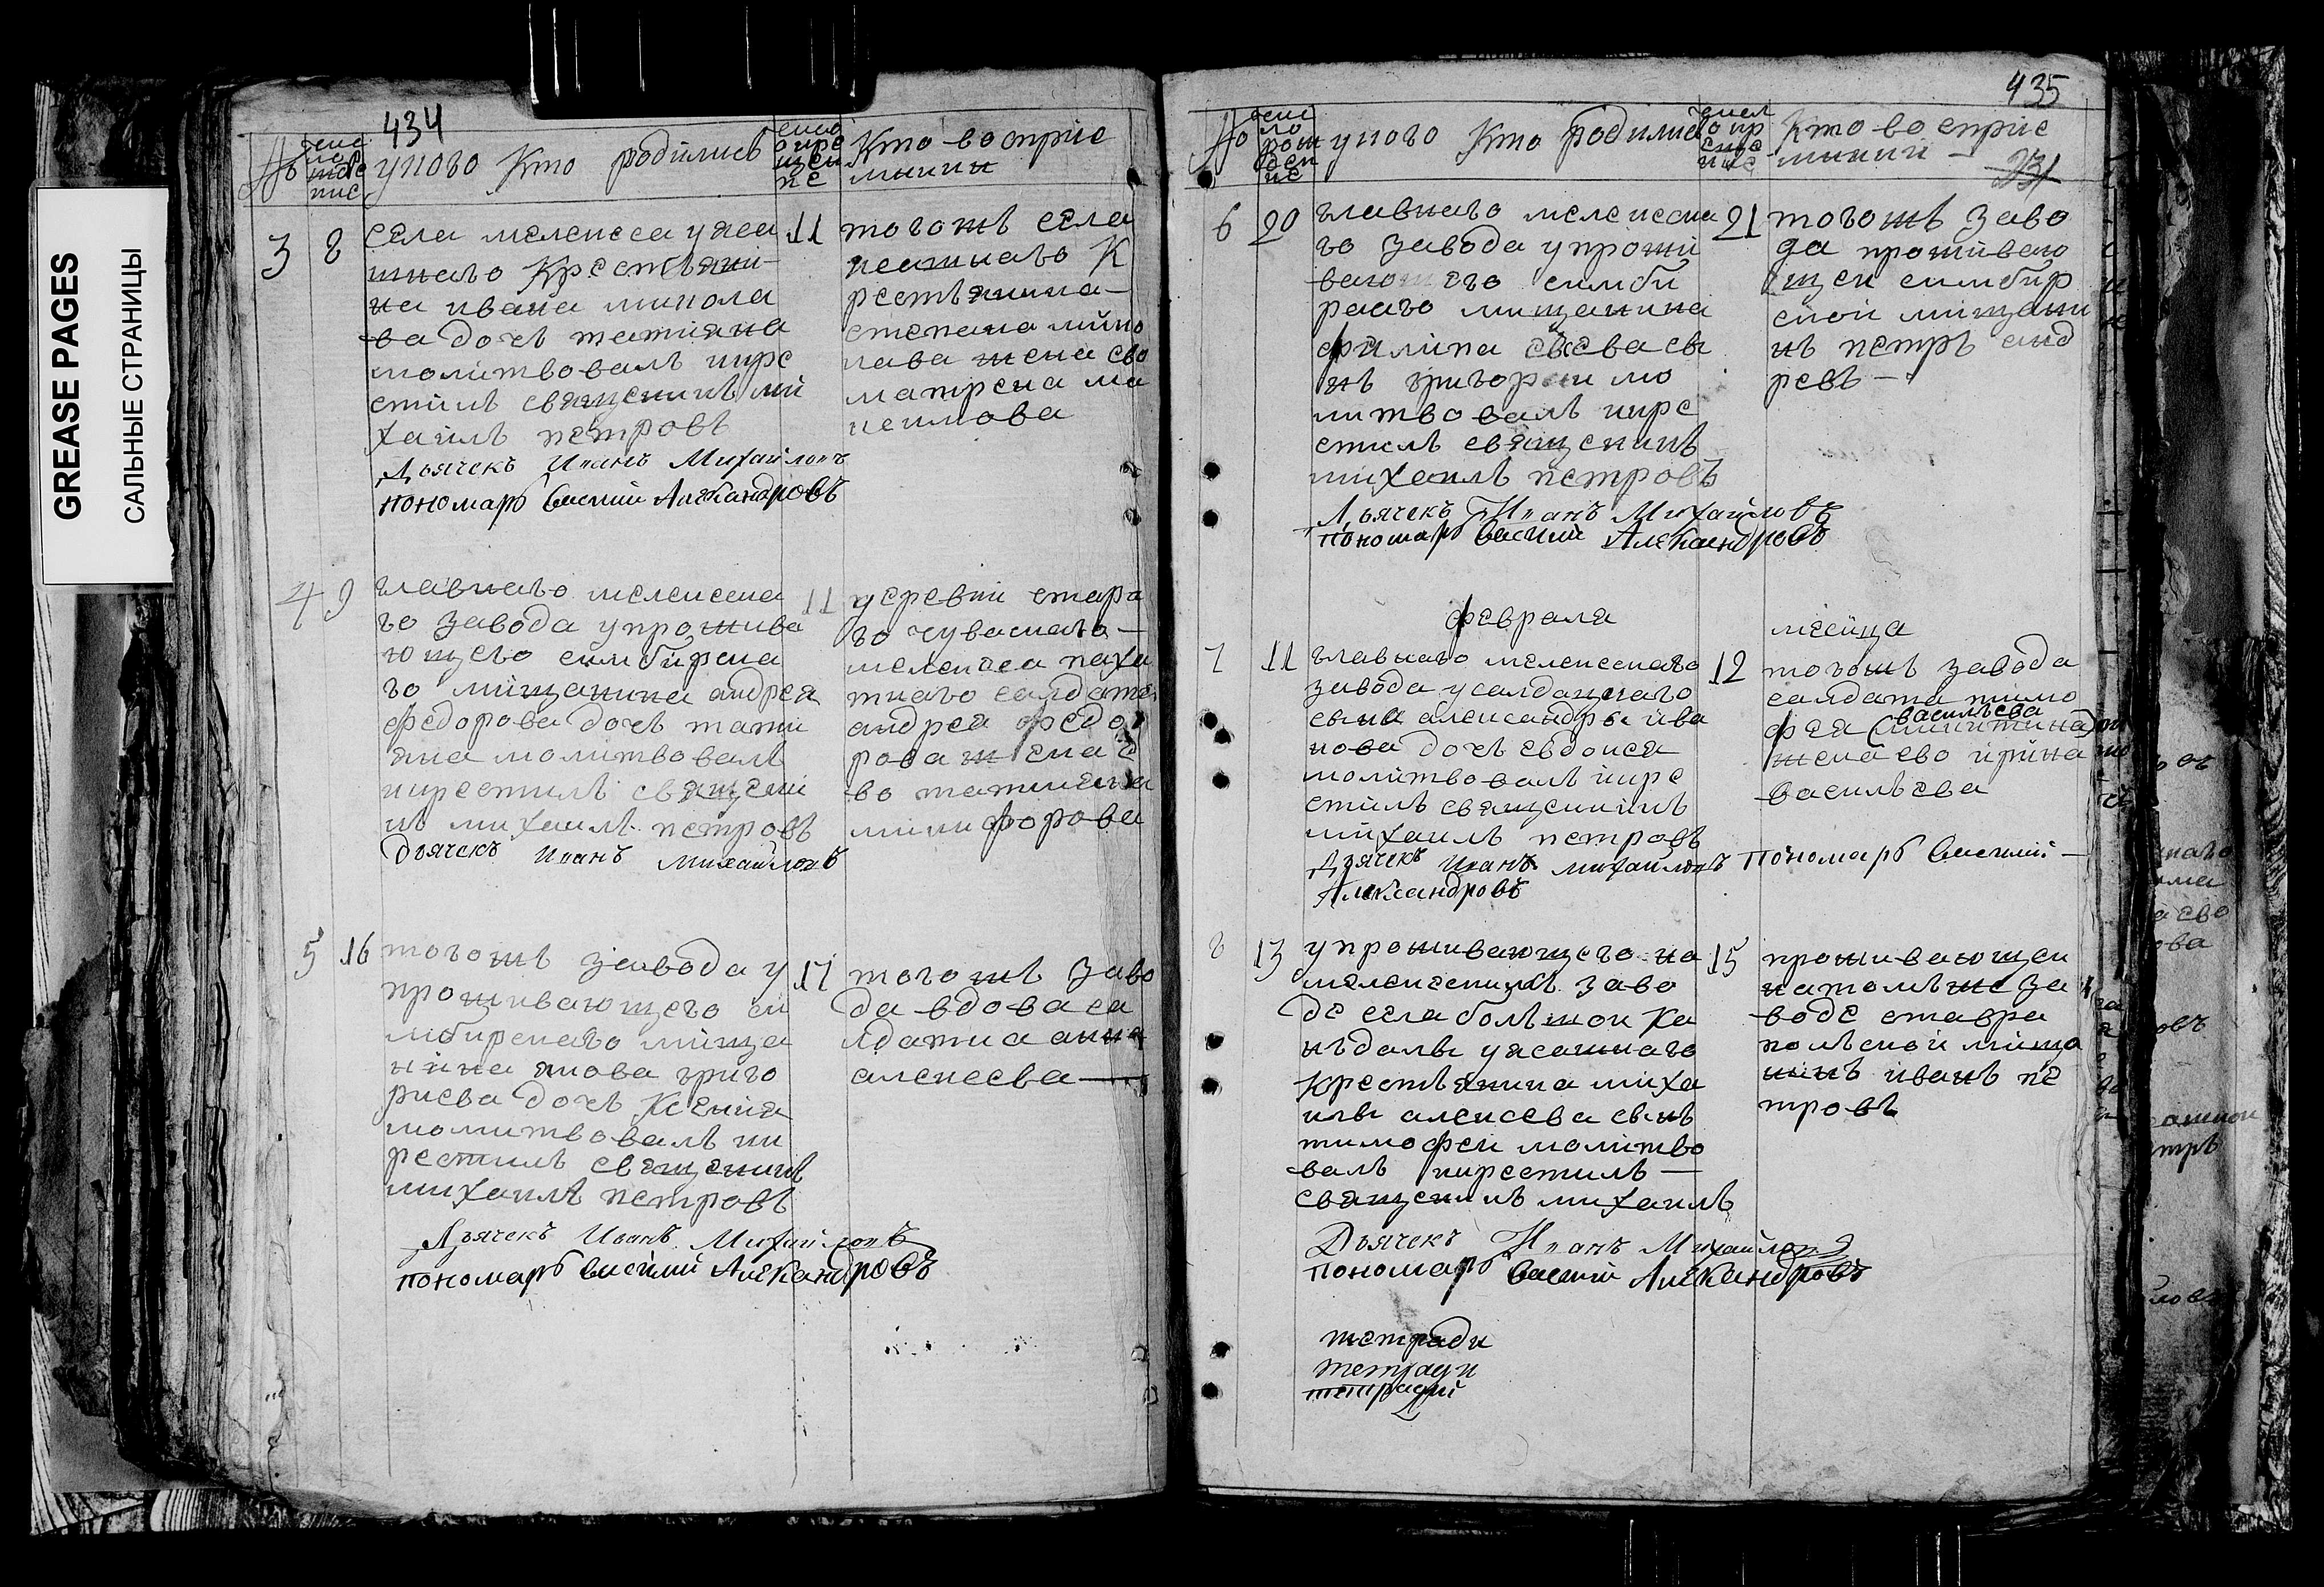 GREASE PAGES
САЛЬНЫЕ СТРАНИЦЫ
434
№
числорожде
ние
у кого кто родились
число
крещен
не
кто восприе
мники
3 8
села мелекеса у яса
шнаго крестьяни
на ивана
ва дочь татияна
молитвовалъ икре
стилъ священикъ ми
хаилъ петровъ
Дьячекъ Иванъ Михайловъ
пономарь Василий Александровъ
11
тогожъ села
ясашнаго к
рестьянина
степана
жена ево
матрена
4 9
главнаго мелекеска
го завода у прожива
ющего симбирска
го мищанина андрея
федорова дочь тати
яна молитвовалъ
икрестилъ священи
къ михаилъ петровъ
Дьячекъ Иванъ Михайловъ
11
деревни стара
го чувашскаго
мелекеса паха
тнаго салдата
андрея федо
рова жена е
во татияна
никифорова
5 16
тогожъ завода у
проживающего си
мбирскаго мища
нина якова григо
риева дочь ксения
молитвовалъ ик
рестилъ священикъ
михаилъ петровъ
Дьячекъ Иванъ Михайловъ
пономарь Василий Александровъ
17
тогожъ заво
да вдова са
лдатка анна
алексеева
435
№
чис
ло
рож
ден
ие
у кого кто родились
числ
о кр
еще
ние
кто восприе
мники
231
6 20
главнаго мелекеска
го завода у прожи
вающего симби
рскаго мищанина
филипа сы
нъ григореи мо
литвовалъ икре
стилъ священикъ
михаилъ петровъ
Дьячекъ Иванъ Михайловъ
пономарь Василий Александровъ
21
тогожъ заво
да проживаю
щеи симбир
скои мищани
нъ петръ анд
ревъ
февраля месица
7 11
главнаго мелекескаго
завода у салдацкаго
сына александры ива
нова дочь евдокея
молитвовалъ икре
стилъ священикъ
михаилъ петровъ
Дьячекъ Иванъ Михайловъ пономарь Василий
Александровъ
12
тогожъ завода
салдата тимо
васильева
фея (никитина)
жена ево ирина
васильева
8 13
у проживающего на
мелекескимъ заво
де села большои ка
нъдалы у ясашнаго
крестьянина миха
илы алексева сынъ
тимофеи молитво
валъ икрестилъ
священикъ михаилъ
Дьячекъ Иванъ Михайловъ
пономарь Василий Александровъ
15
проживающеи
натомъ же за
воде ставра
польскои мища
нинъ иванъ пе
тровъ
тетради
тетради
тетрадий